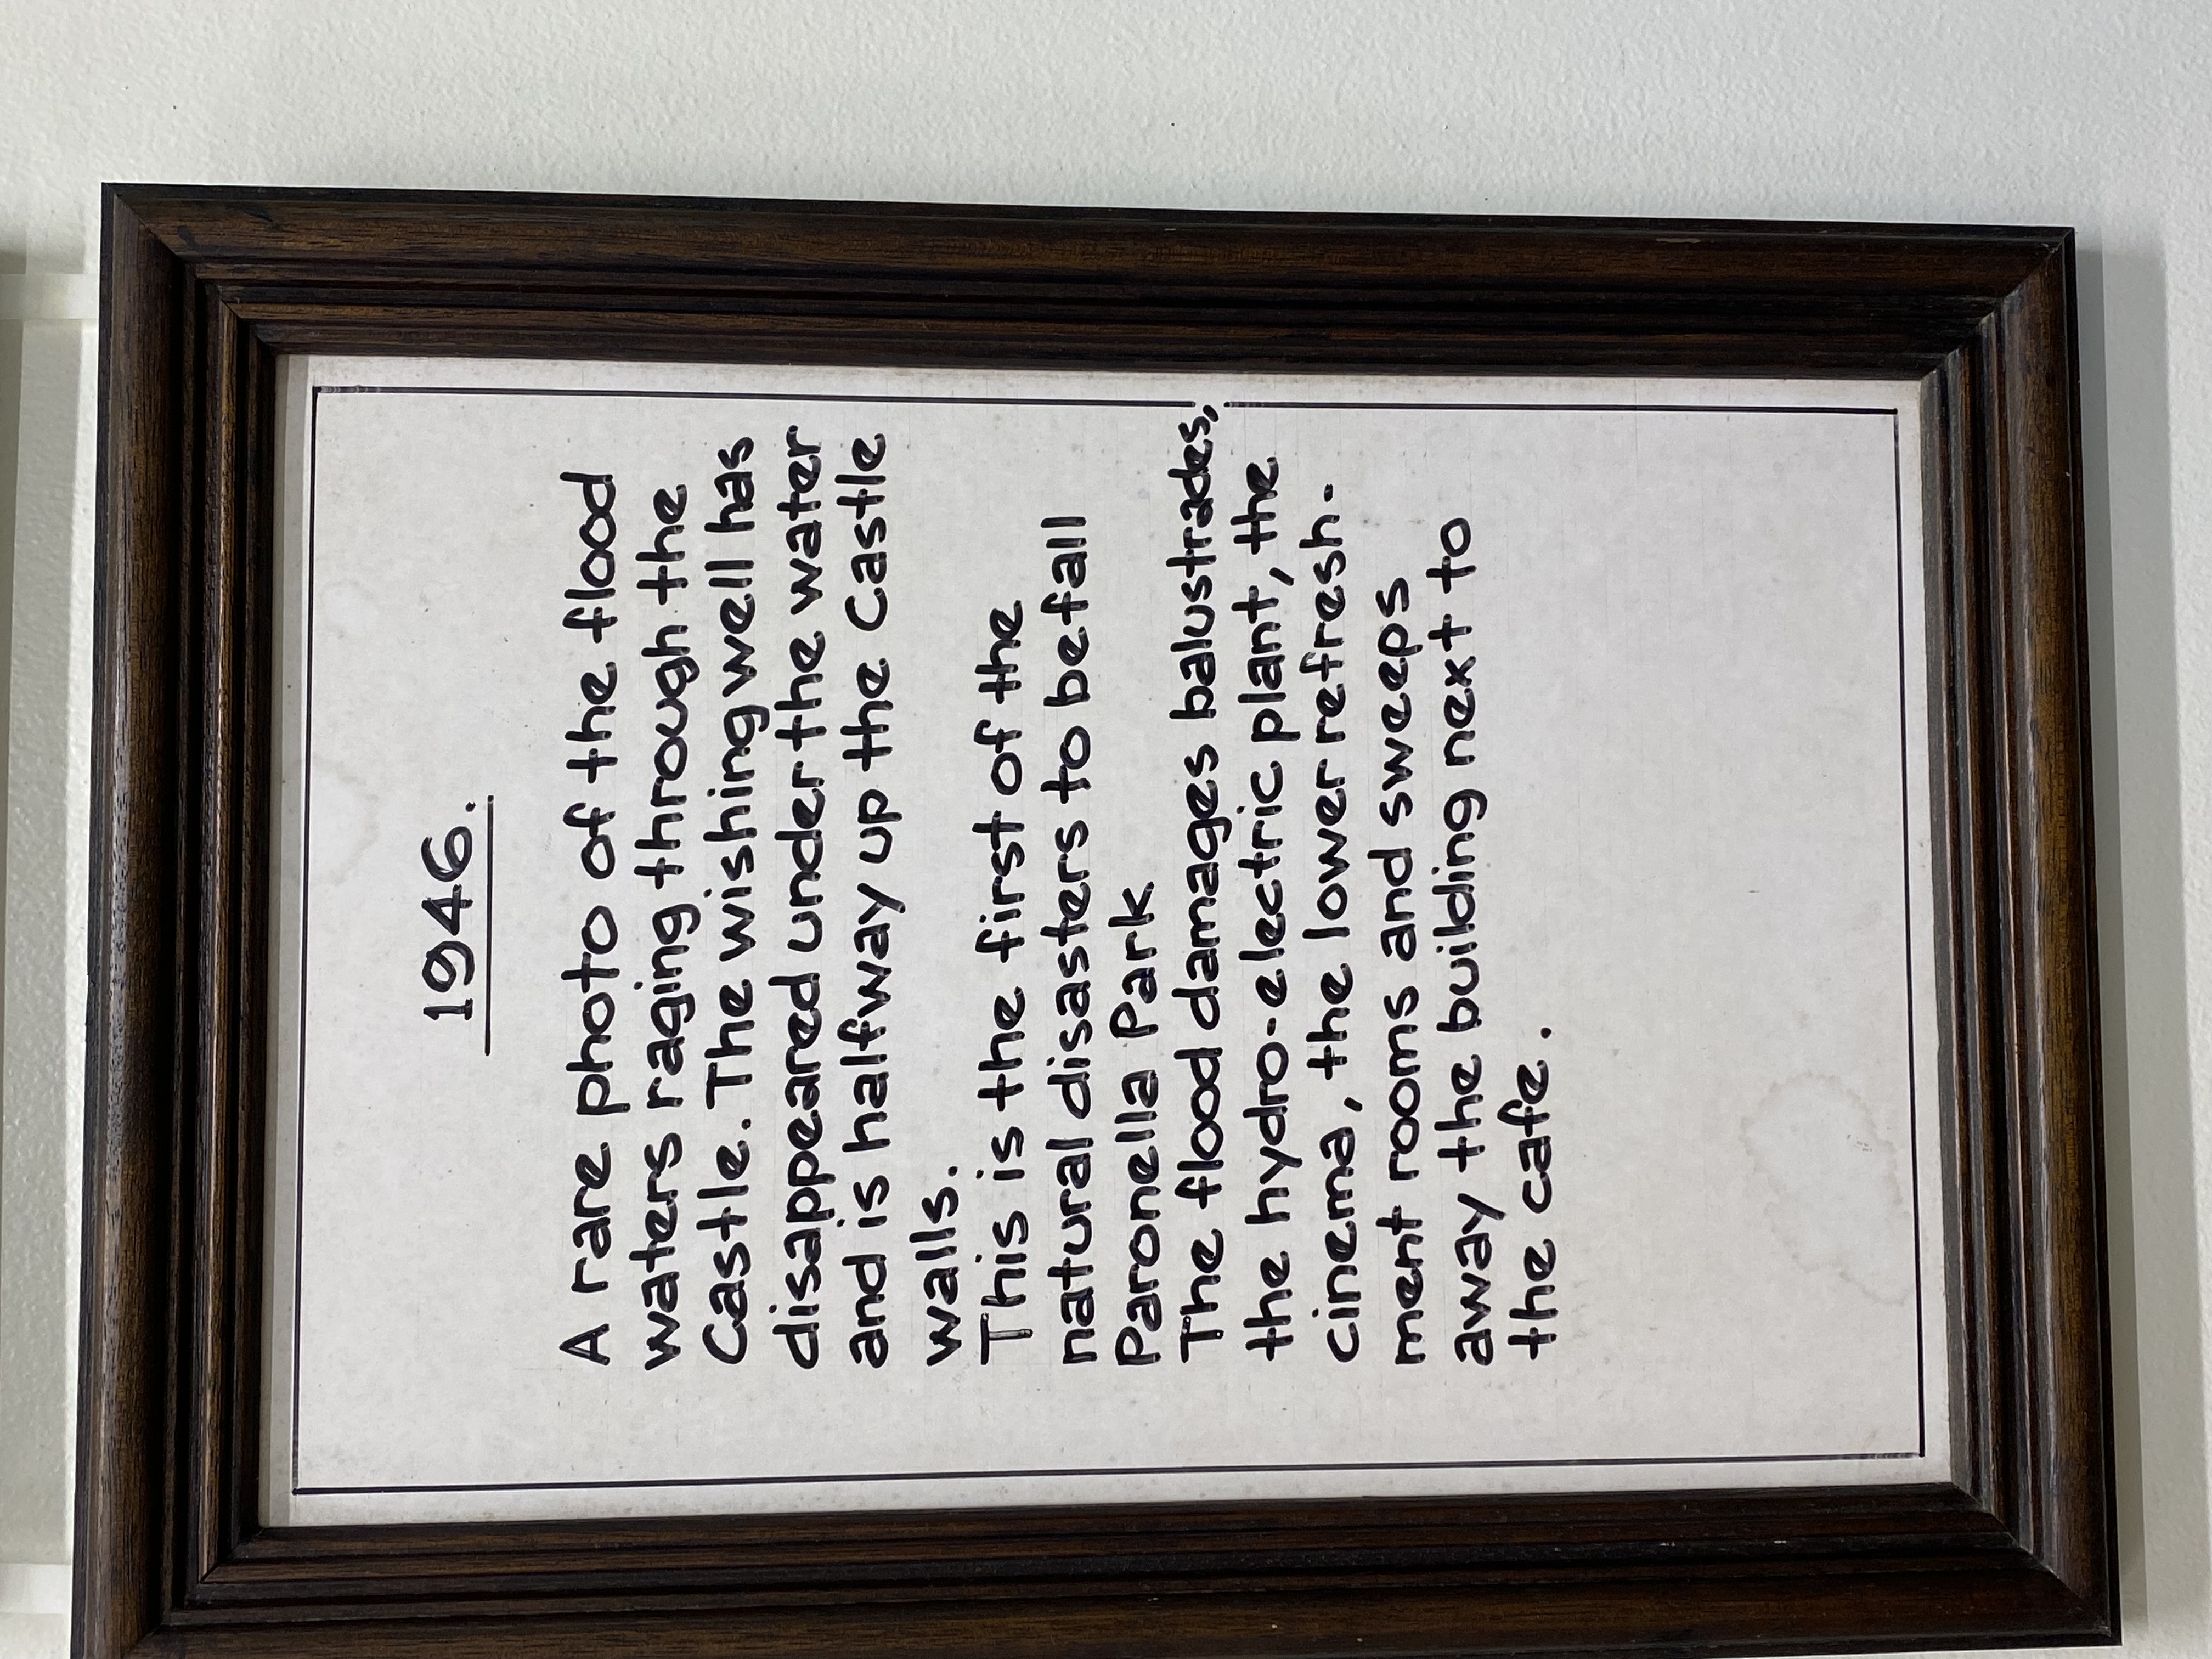 1946.
A rare photo of the flood
waters raging through the
Castle. The wishing well has
disappeared under the water
and is halfway up the Castle
walls.
This is the first of the
natural disasters to befall
Paronella Park
The flood damages balustrades,
the hydro-electric plant, the
cinema, the lower refresh-
ment rooms and sweeps
away the building next to
the cafe.